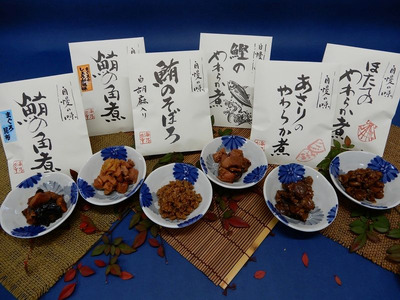 自慢の味
鮪の角煮
まぐろ昆布
鮪の角煮
自慢の味
鮪のそぼろ
白胡麻入り
自慢の味
鰹の
やわらか煮
自慢の味
あさりの
やわらか煮
自慢の味
ほたての
やわらか煮